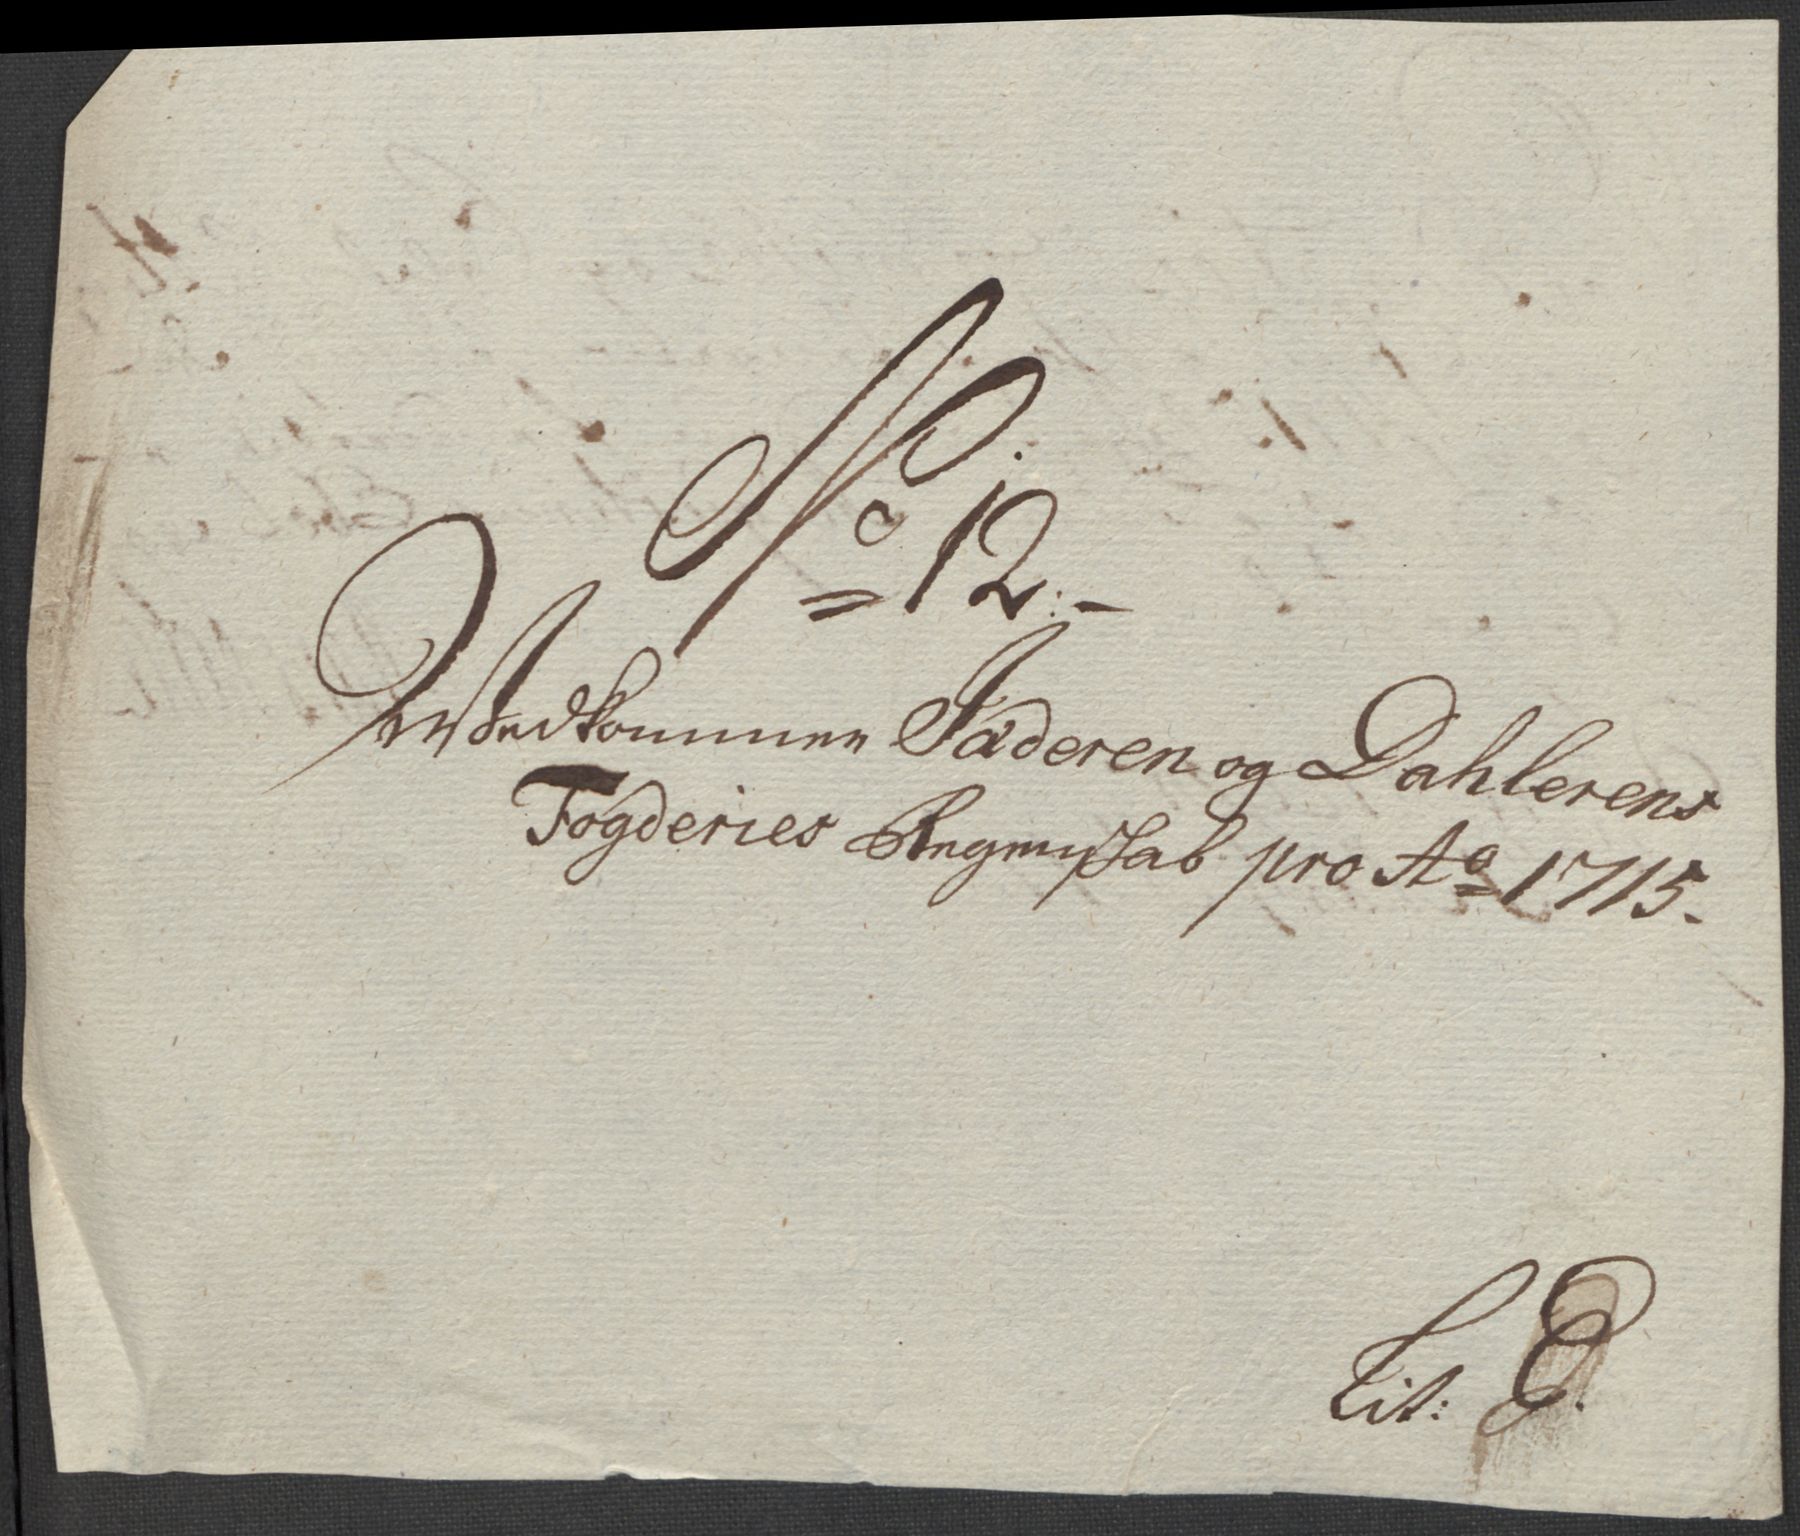 No 12:-
Wedkommer Jæderen og Dahlerens
Fogderies Regnskab pro Ao 1715.
Lit: